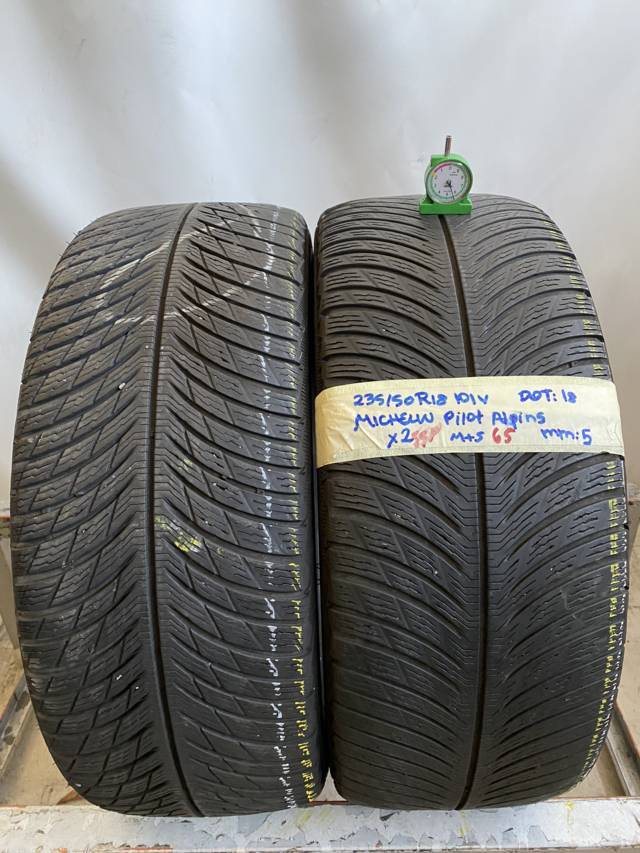 235/50R18 101V DOT: 18
MICHELIN Pilot Alpin5
x2 M+S 65 mm:5